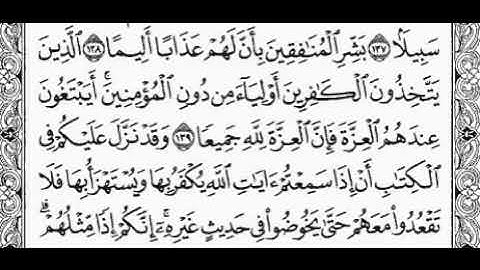 سَبِيلًا ١٣٧ بَشِّرِ ٱلْمُنَٰفِقِينَ بِأَنَّ لَهُمْ عَذَابًا أَلِيمًا ١٣٨ ٱلَّذِينَ
يَتَّخِذُونَ ٱلْكَٰفِرِينَ أَوْلِيَآءَ مِن دُونِ ٱلْمُؤْمِنِينَ ۚ أَيَبْتَغُونَ
عِندَهُمُ ٱلْعِزَّةَ فَإِنَّ ٱلْعِزَّةَ لِلَّهِ جَمِيعًا ١٣٩ وَقَدْ نَزَّلَ عَلَيْكُمْ فِى
ٱلْكِتَٰبِ أَنْ إِذَا سَمِعْتُمْ ءَايَٰتِ ٱللَّهِ يُكْفَرُ بِهَا وَيُسْتَهْزَأُ بِهَا فَلَا
تَقْعُدُوا۟ مَعَهُمْ حَتَّىٰ يَخُوضُوا۟ فِى حَدِيثٍ غَيْرِهِۦٓ ۚ إِنَّكُمْ إِذًا مِّثْلُهُمْ ۗ